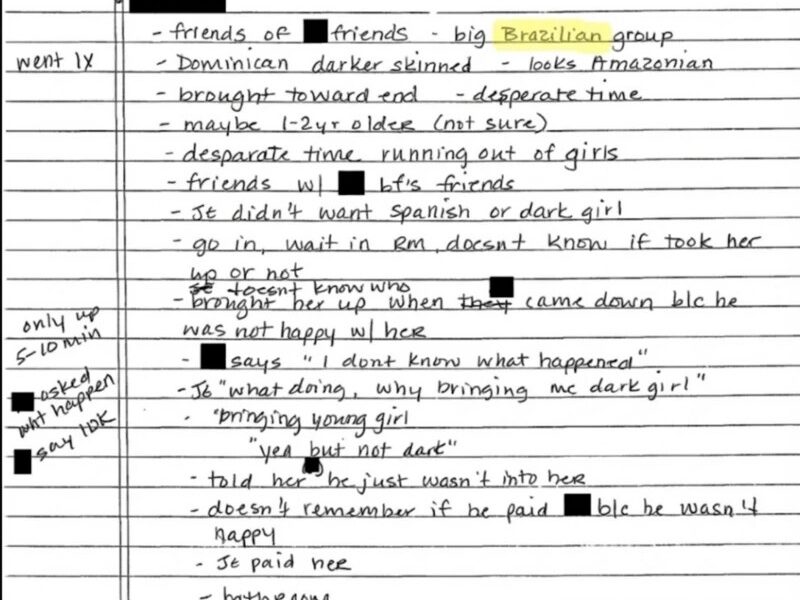 - friends of friends - big Brazilian group
went 1x
- Dominican darker skinned - looks Amazonian
- brought toward end - desperate time
- maybe 1-2yr older (not sure)
- desparate time running out of girls
- friends w/ bf's friends
- JE didn't want Spanish or dark girl
- go in, wait in RM, doesnt know if took her
up or not
doesnt know who
- brought her up when they came down b/c he
was not happy w/ her
only up
5-10 min
- says "I dont know what happened"
asked
wht happen
- JE "what doing, why bringing me dark girl"
say IDK
- "bringing young girl
"yea but not dark"
- told her he just wasn't into her
- doesn't remember if he paid b/c he wasn't
happy
- JE paid her